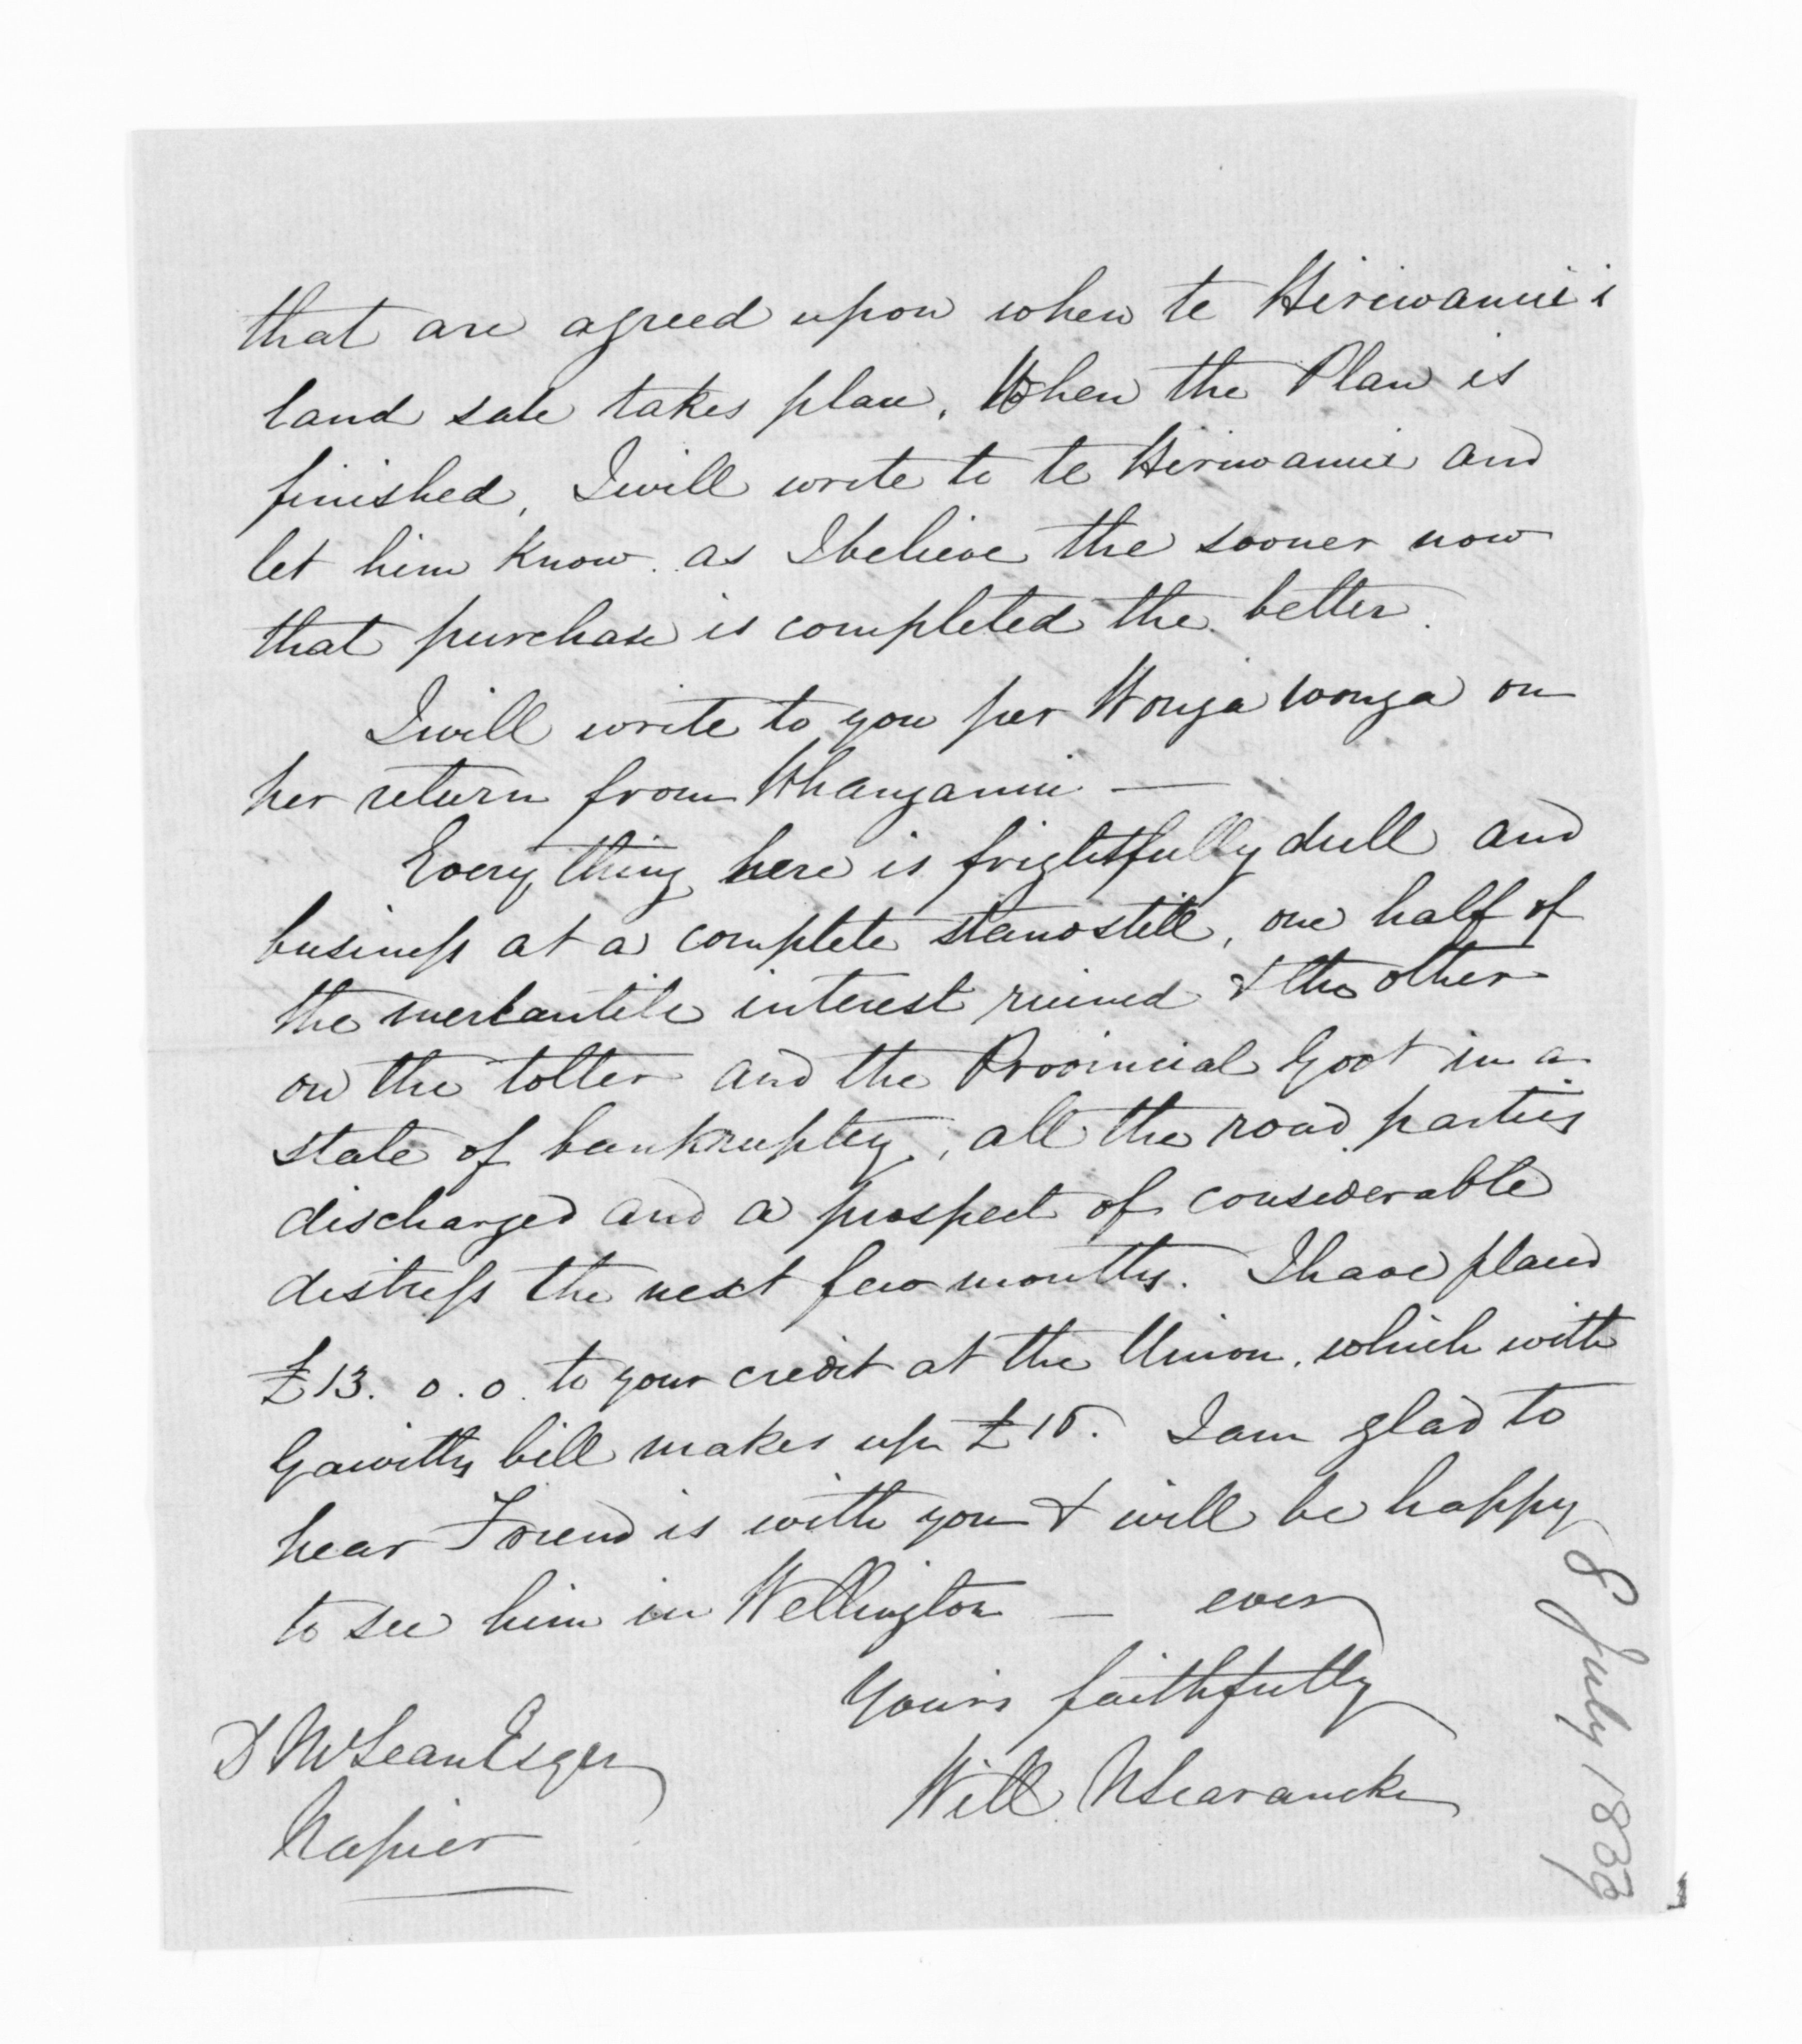 that are agreed upon when te Hiriwanui i
land sale takes place. When the Plan is
finished, I will write to te Hiriwanui and
let him know. as I believe the sooner now
that purchase is completed the better.
I will write to you per Wonga Wonga on
her return from Whanganui —
Every thing here is frightfully dull and
business at a complete standstill, one half of
the merkantile interest ruined & the other
on the totter and the Provincial Govt in a
state of bankruptcy, all the road parties
discharged and a prospect of considerable
distress the next few months. I have placed
£13. 0. 0. to your credit at the Union. which with
bill makes up £15. I am glad to
hear Friend is with you & will be happy
to see him in Wellington — ever
Yours faithfully
Will N Searancke
D McLean Esqre
Napier
8 July 1833